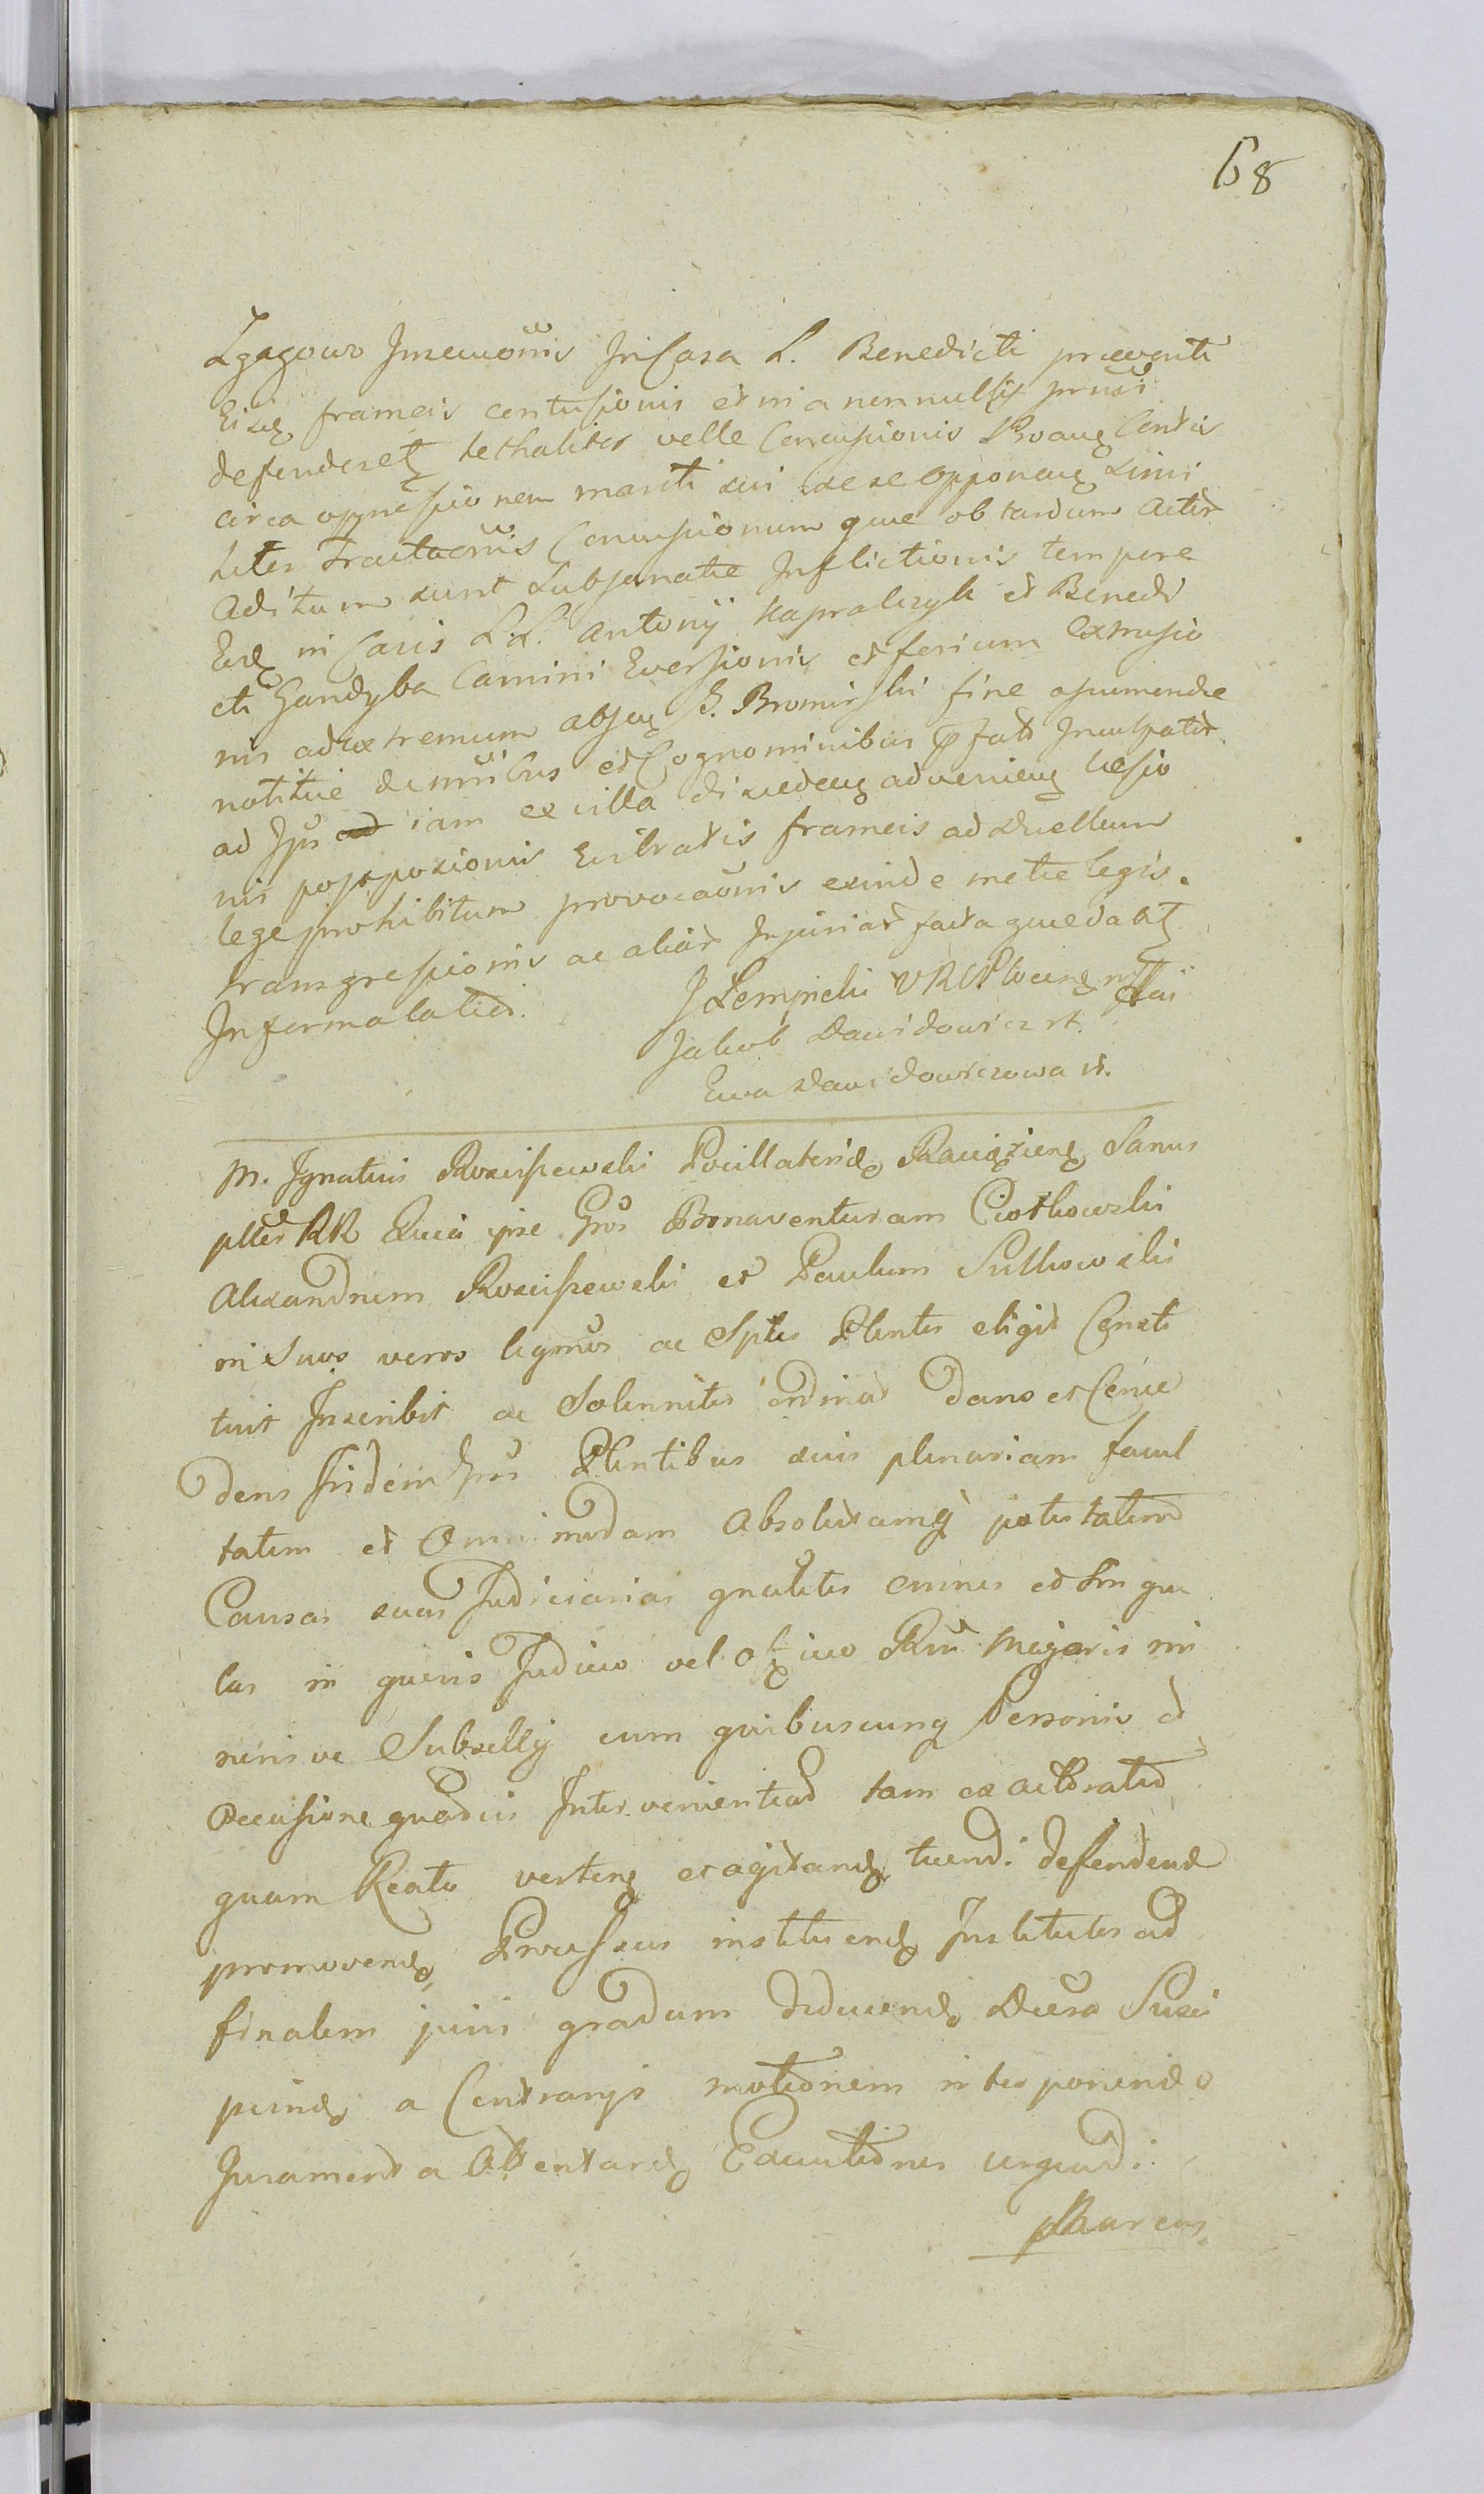 68
Zgagowo Insecuoñis In Casa L. Benedicti praeventi
Eisdę frameis contusionis et ni a nonnullis pñsi
defenderetꝫ lethaliter velle Concussionis Roaneę Contis
circa oppressionem mariti sui sese opponeneę simi
liter Tractaoñis Concussionum quae ob tardum Actor
Aditum sunt Subsanatae Inflictionis tempore
Eodę in Casis L.L. Antonij Kapralczyk et Benedi
cti Gandyba Camini Eversionis et ferium Extrusio
nis ad extremum absque G. Bromirski fine assumendae
notitiae de nñibus et Cognominibus pfats Inculpator
ad Ips iam ex villa discedeneę advenieneę laesio
nis postpositionis Evibratis frameis ad Duellum
lege prohibitum provocaoñis exinde metae legis
transgressionis ac aliar Injuriar facta quae dabitꝫ
In forma latiori.
J Lempicki VRCPlocensę mppai
Jakob Dawidowicz st.
Ewa Dawidowiczowa st.
M. Ignatius Rosciszewski Pocillatoridę Raciązieneę Sanus
plter RR Quia ipse Gsos Bonaventuram Ciotkowski
Alexandrum Rosciszewski et Paulum Sulkowski
in Suos veros legmos ac Sples Plentes eligit Consti
tuit Inscribit ac Solenniter ordinat Dans et Conce
dens Iisdem Gsos Plentibus suis plenariam facul
tatem et Omnimodam Absolutamq potestatem
Causas suas Judiciarias gnaliter omnes et Singu
las in quovis Judicio vel Officio Rni Majoris mi
norisve Subsellij cum quibuscunq Personis et
occasione quadvis Intervenientiad tam ex actoratu
quam Reatu verteneę et agitandę tuendi defendend
promovendę, Processus instituendę Institutos ad
finalem juris gradum deducendę Decreta Susci
piendę a Contrarijs motionem interponendo
Juramenta Attentandę Executiones urgendi.